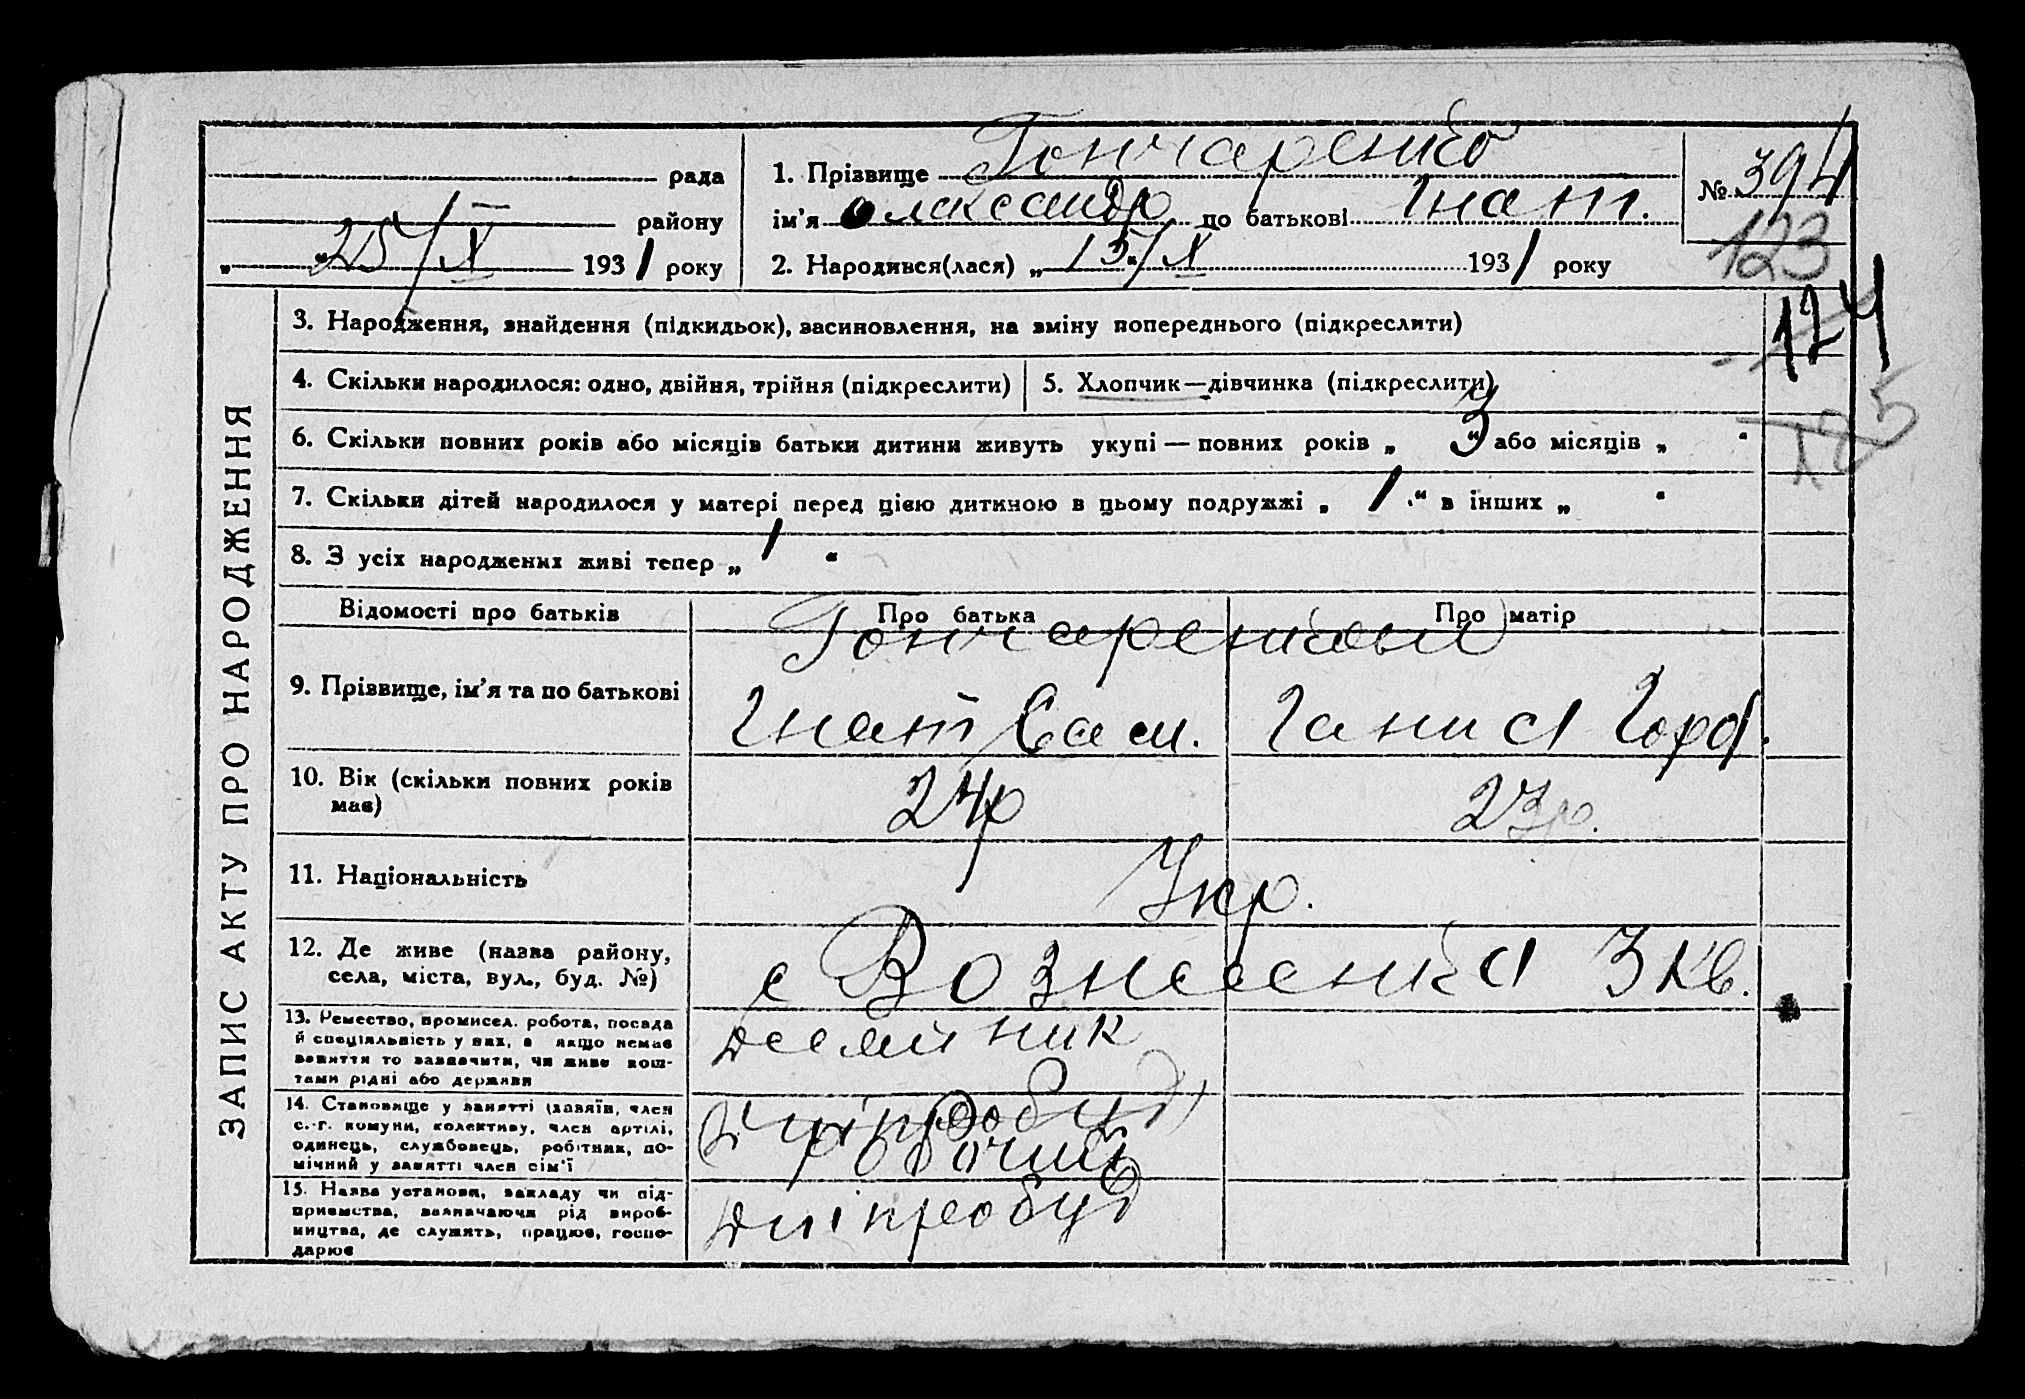 рада
району
„ 25/X “ 1931 року
1. Прізвище Гончаренко
ім’я Олександр по батькові Гнат.
2. Народився(лася) „ 15/X “ 1931 року
№ 394
123
124
125
ЗАПИС АКТУ ПРО НАРОДЖЕННЯ
3. Народження, знайдення (підкидьок), засиновлення, на зміну попереднього (підкреслити)
4. Скільки народилося: одно, двійня, трійня (підкреслити)
5. Хлопчик—дівчинка (підкреслити)
6. Скільки повних років або місяців батьки дитини живуть укупі — повних років „ 3 “ або місяців „ “
7. Скільки дітей народилося у матері перед цією дитиною в цьому подружжі „ 1 “ в інших „ “
8. З усіх народжених живі тепер „ 1 “
Відомості про батьків Про батька Про матір
Гончаренкови
9. Прізвище, ім’я та по батькові Гнат Сам. Ганна
10. Вік (скільки повних років 24р 23р.
має)
11. Національність Укр.
12. Де живе (назва району, с Вознесенка 3 кв.
села, міста, вул., буд. №)
13. Ремество, промисел. робота, посада
й спеціяльність у них, а якщо немає
заняття то зазначити, чи живе кош-
тами рідні або держави
десятник
14. Становище у занятті (хазяїн, член
с.-г. комуни, колективу, член артілі,
одинець, службовець, робітник, по-
мічний у занятті член сім’ї
Дніпробуд
робочий
15. Назва установи, закладу чи під-
приємства, зазначаючи рід вироб-
ництва, де служить, працює, госпо-
дарює
Дніпробуд